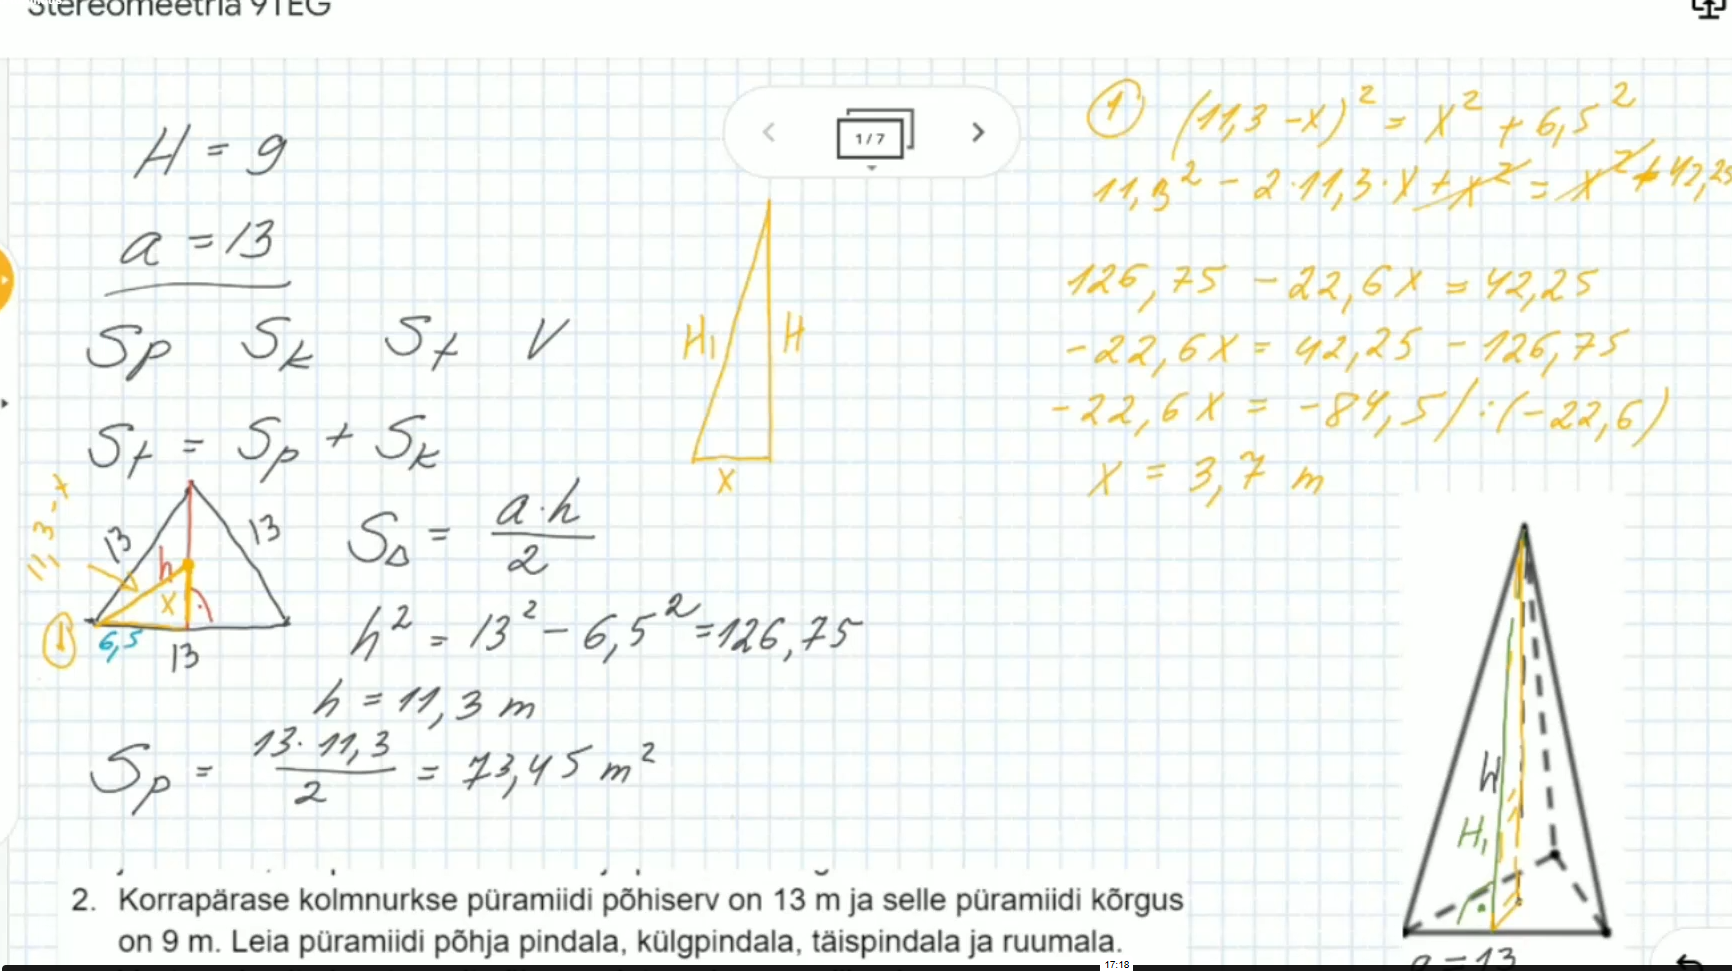 Stereomeetria 9TEG
H = 9
a = 13
Sp Sk St V
St = Sp + Sk
11,3-x
13 13
h
x
1
6,5
13
S△ = a·h / 2
h² = 13² - 6,5² = 126,75
h = 11,3 m
Sp = 13·11,3 / 2 = 73,45 m²
1/7
H₁ H
x
1 (11,3 -x)² = x² + 6,5²
11,3² - 2·11,3·x + x² = x² + 42,25
126,75 - 22,6x = 42,25
-22,6x = 42,25 - 126,75
-22,6x = -84,5 / :(-22,6)
x = 3,7 m
H
H₁
a = 13
2. Korrapärase kolmnurkse püramiidi põhiserv on 13 m ja selle püramiidi kõrgus
on 9 m. Leia püramiidi põhja pindala, külgpindala, täispindala ja ruumala.
17:18